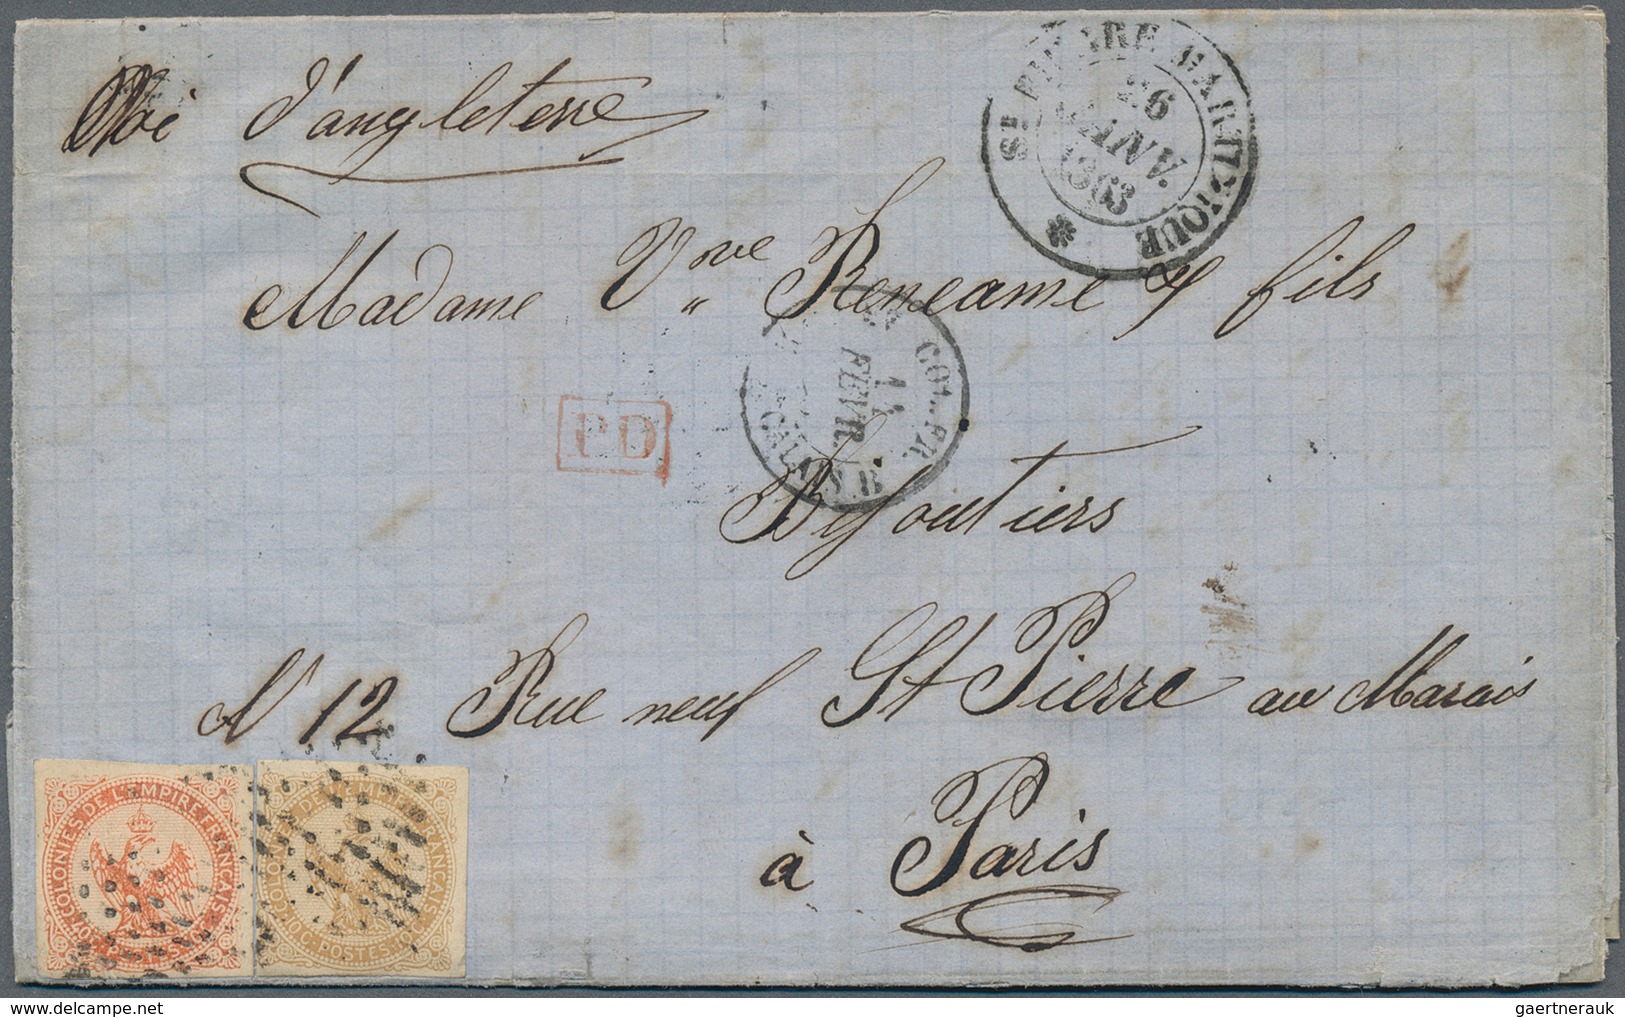 Voie d'angleterre
ST PIERRE MARTINIQUE
26
JANV.
1863
Madame Vve Reneaume & fils
COL. FR.
14
FEVR.
CALAIS B
PD
Bijoutiers
N 12 Rue neuf St Pierre au Marais
à Paris
COLONIES DE L'EMPIRE FRANÇAIS
POSTES
COLONIES DE L'EMPIRE FRANÇAIS
10 C. POSTES 10 C.
gaertnerauk@delcampe.net